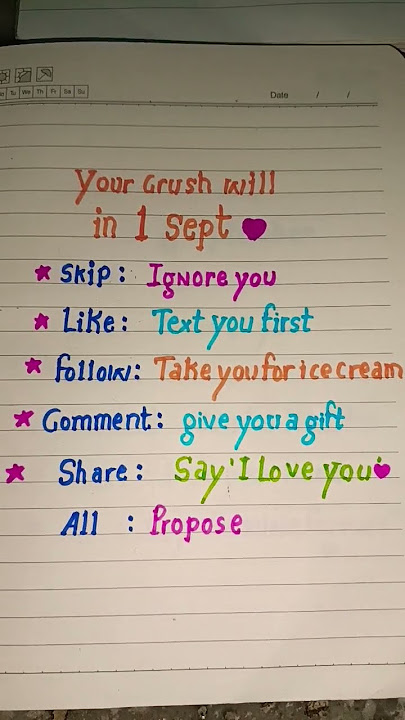 Tu We Th Fr Sa Su
Date / /
Your Crush will
in 1 Sept
Skip : Ignore you
Like : Text you first
follow : Take you for ice cream
Comment : give you a gift
Share : Say 'I Love you'
All : Propose